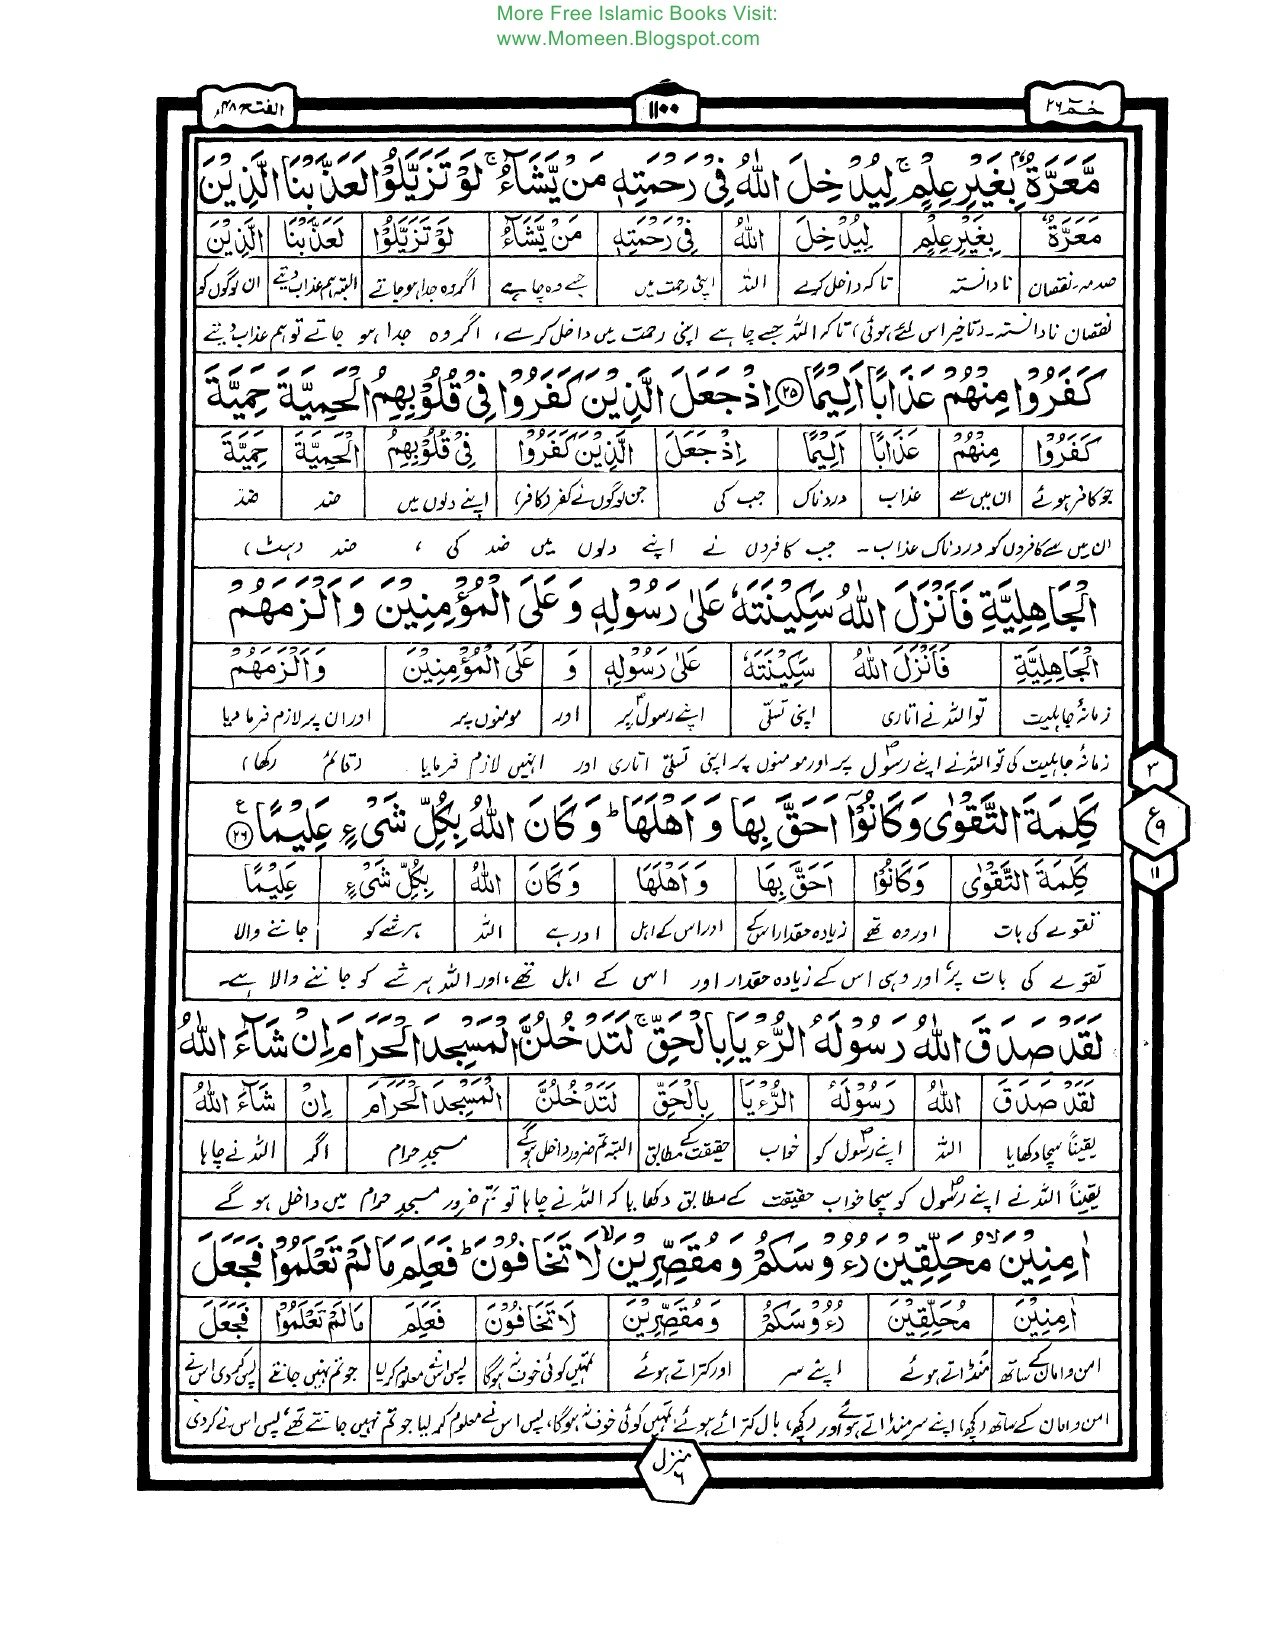 More Free Islamic Books Visit:
www.Momeen.Blogspot.com
حٰمٓ ۲۶
۱۱۰۰
الفتح ۴۸
مَّعَرَّةٌۢ بِغَيْرِ عِلْمٍ ۚ لِيُدْخِلَ اللّٰهُ فِيْ رَحْمَتِهٖ مَنْ يَّشَآءُ ۚ لَوْ تَزَيَّلُوْا لَعَذَّبْنَا الَّذِيْنَ
مَعَرَّةٌ بِغَيْرِ عِلْمٍ لِيُدْخِلَ اللّٰهُ فِيْ رَحْمَتِهٖ مَنْ يَّشَآءُ لَوْ تَزَيَّلُوْا لَعَذَّبْنَا الَّذِيْنَ
صدمہ۔نقصان نادانستہ تاکہ داخل کرے اللہ اپنی رحمت میں جسے وہ چاہے اگر وہ جدا ہو جاتے البتہ ہم عذاب دیتے ان لوگوں کو
نقصان نادانستہ۔ (تاخیر اس لئے ہوئی) تاکہ اللہ جسے چاہے اپنی رحمت میں داخل کرے، اگر وہ جدا ہو جاتے تو ہم عذاب دیتے
كَفَرُوْا مِنْهُمْ عَذَابًا اَلِيْمًا ۲۵ اِذْ جَعَلَ الَّذِيْنَ كَفَرُوْا فِيْ قُلُوْبِهِمُ الْحَمِيَّةَ حَمِيَّةَ
كَفَرُوْا مِنْهُمْ عَذَابًا اَلِيْمًا اِذْ جَعَلَ الَّذِيْنَ كَفَرُوْا فِيْ قُلُوْبِهِمُ الْحَمِيَّةَ حَمِيَّةَ
جو کافر ہوئے ان میں سے عذاب دردناک جب کی جن لوگوں نے کفر کیا (کافر) اپنے دلوں میں ضد ضد
ان میں سے کافروں کو دردناک عذاب۔ جب کافروں نے اپنے دلوں میں ضد کی ، ضد (ہٹ)
الْجَاهِلِيَّةِ فَاَنْزَلَ اللّٰهُ سَكِيْنَتَهٗ عَلٰى رَسُوْلِهٖ وَ عَلَى الْمُؤْمِنِيْنَ وَ اَلْزَمَهُمْ
الْجَاهِلِيَّةِ فَاَنْزَلَ اللّٰهُ سَكِيْنَتَهٗ عَلٰى رَسُوْلِهٖ وَ عَلَى الْمُؤْمِنِيْنَ وَاَلْزَمَهُمْ
زمانۂ جاہلیت تو اللہ نے اتاری اپنی تسلی اپنے رسولؐ پر اور مومنوں پر اور ان پر لازم فرما دیا
زمانۂ جاہلیت کی تو اللہ نے اپنے رسولؐ پر اور مومنوں پر اپنی تسلی اتاری اور انہیں لازم فرمایا (قائم رکھا)
كَلِمَةَ التَّقْوٰى وَ كَانُوْٓا اَحَقَّ بِهَا وَ اَهْلَهَا ؕ وَ كَانَ اللّٰهُ بِكُلِّ شَيْءٍ عَلِيْمًا ۲۶ ع
۳
ع ۹
۱۱
كَلِمَةَ التَّقْوٰى وَ كَانُوْٓا اَحَقَّ بِهَا وَ اَهْلَهَا وَ كَانَ اللّٰهُ بِكُلِّ شَيْءٍ عَلِيْمًا
تقوے کی بات اور وہ تھے زیادہ حقدار اس کے اور اس کے اہل اور ہے اللہ ہر شے کو جاننے والا
تقوے کی بات پر، اور وہی اس کے زیادہ حقدار اور اس کے اہل تھے، اور اللہ ہر شے کو جاننے والا ہے۔
لَقَدْ صَدَقَ اللّٰهُ رَسُوْلَهُ الرُّءْيَا بِالْحَقِّ ۚ لَتَدْخُلُنَّ الْمَسْجِدَ الْحَرَامَ اِنْ شَآءَ اللّٰهُ
لَقَدْ صَدَقَ اللّٰهُ رَسُوْلَهُ الرُّءْيَا بِالْحَقِّ لَتَدْخُلُنَّ الْمَسْجِدَ الْحَرَامَ اِنْ شَآءَ اللّٰهُ
یقیناً سچا دکھایا اللہ اپنے رسولؐ کو خواب حقیقت کے مطابق البتہ تم ضرور داخل ہوگے مسجدِ حرام اگر اللہ نے چاہا
یقیناً اللہ نے اپنے رسولؐ کو سچا خواب حقیقت کے مطابق دکھایا کہ اللہ نے چاہا تو تم ضرور مسجدِ حرام میں داخل ہو گے
اٰمِنِيْنَ ۙ مُحَلِّقِيْنَ رُءُوْسَكُمْ وَ مُقَصِّرِيْنَ ۙ لَا تَخَافُوْنَ ؕ فَعَلِمَ مَا لَمْ تَعْلَمُوْا فَجَعَلَ
اٰمِنِيْنَ مُحَلِّقِيْنَ رُءُوْسَكُمْ وَ مُقَصِّرِيْنَ لَا تَخَافُوْنَ فَعَلِمَ مَا لَمْ تَعْلَمُوْا فَجَعَلَ
امن و امان کے ساتھ منڈاتے ہوئے اپنے سر اور کتراتے ہوئے تمہیں کوئی خوف نہ ہوگا پس اس نے معلوم کر لیا جو تم نہیں جانتے پس کر دی اس نے
امن و امان کے ساتھ رکھ، اپنے سر منڈاتے ہوئے اور رکھ، بال کتراتے ہوئے، تمہیں کوئی خوف نہ ہوگا، پس اس نے معلوم کر لیا جو تم نہیں جانتے تھے، پس اس نے کر دی
منزل ۶